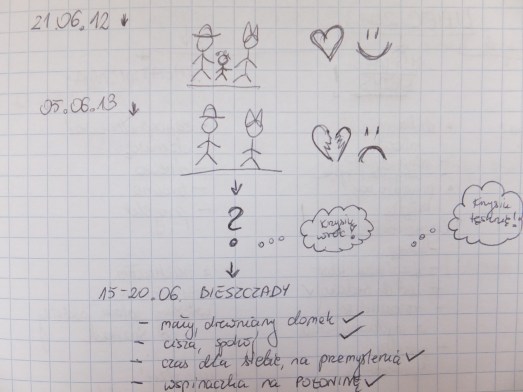 21.06.12
05.06.13
?
Krysiu
wróć!
Krysiu
tęsknię!
15-20.06. BIESZCZADY
- mały, drewniany domek
- cisza, spokój
- czas dla siebie, na przemyślenia
- wspinaczka na POŁONINĘ